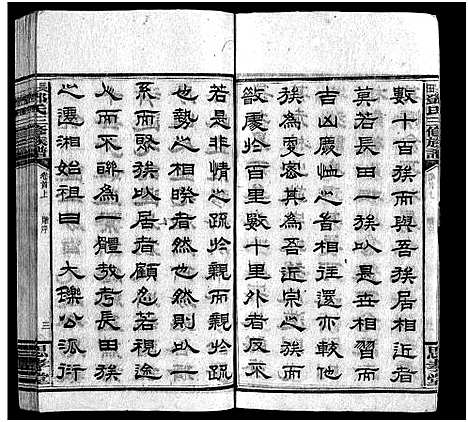 數十百族而與吾族居相近者
莫若長田一族以是世相習而
吉凶慶恤之者相往還亦較他
族為更密其為吾近宗之族而
散處於百里數十里外者反不
若是非情之疏於而親於疏
也勢之相暌者然則以一
系而緊族以居者顧忍若視途
人而不聯為一體敎考長田族
之遷湘始祖曰 大瓅公派衍
三修族譜
卷首上
三
思孝堂